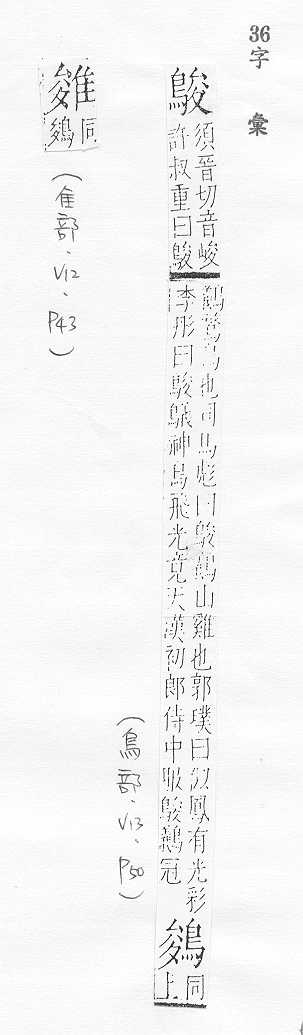 36字 彙
鵔
須晉切音峻
許叔重曰鵔
鸃鷩鳥也司馬彪曰鵔鸃山雞也郭璞曰似鳳有光彩
李彤曰鵔鸃神鳥飛光竟天漢初郎侍中服鵔鸃冠
同上
(鳥部.V13.P50)
同
(隹部.V12.P43)